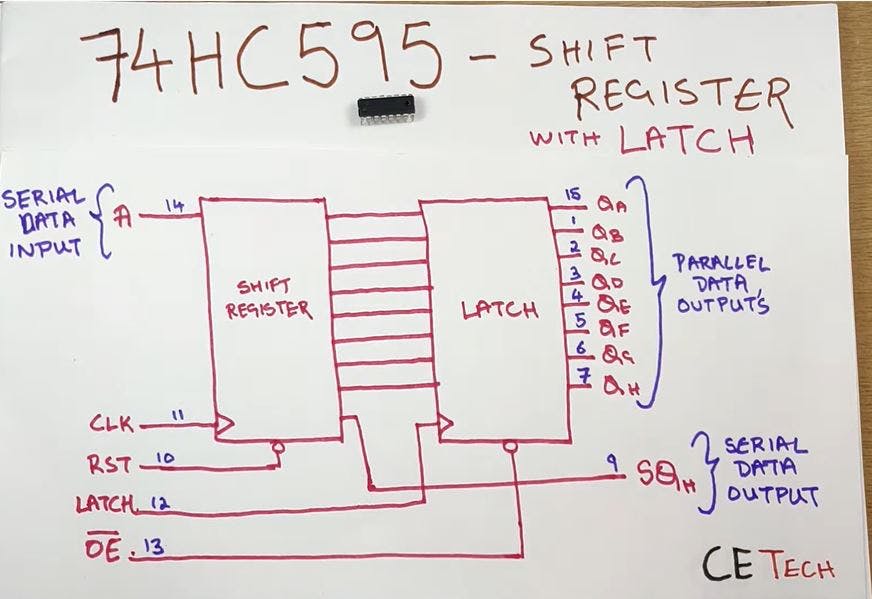 74HC595 - SHIFT
REGISTER
WITH LATCH
SERIAL
DATA
INPUT
A
14
SHIFT
REGISTER
LATCH
15 QA
1 QB
2 QC
3 QD
4 QE
5 QF
6 QG
7 QH
PARALLEL
DATA
OUTPUTS
CLK 11
RST 10
LATCH 12
O̅E̅ 13
9 SQH
SERIAL
DATA
OUTPUT
CE TECH